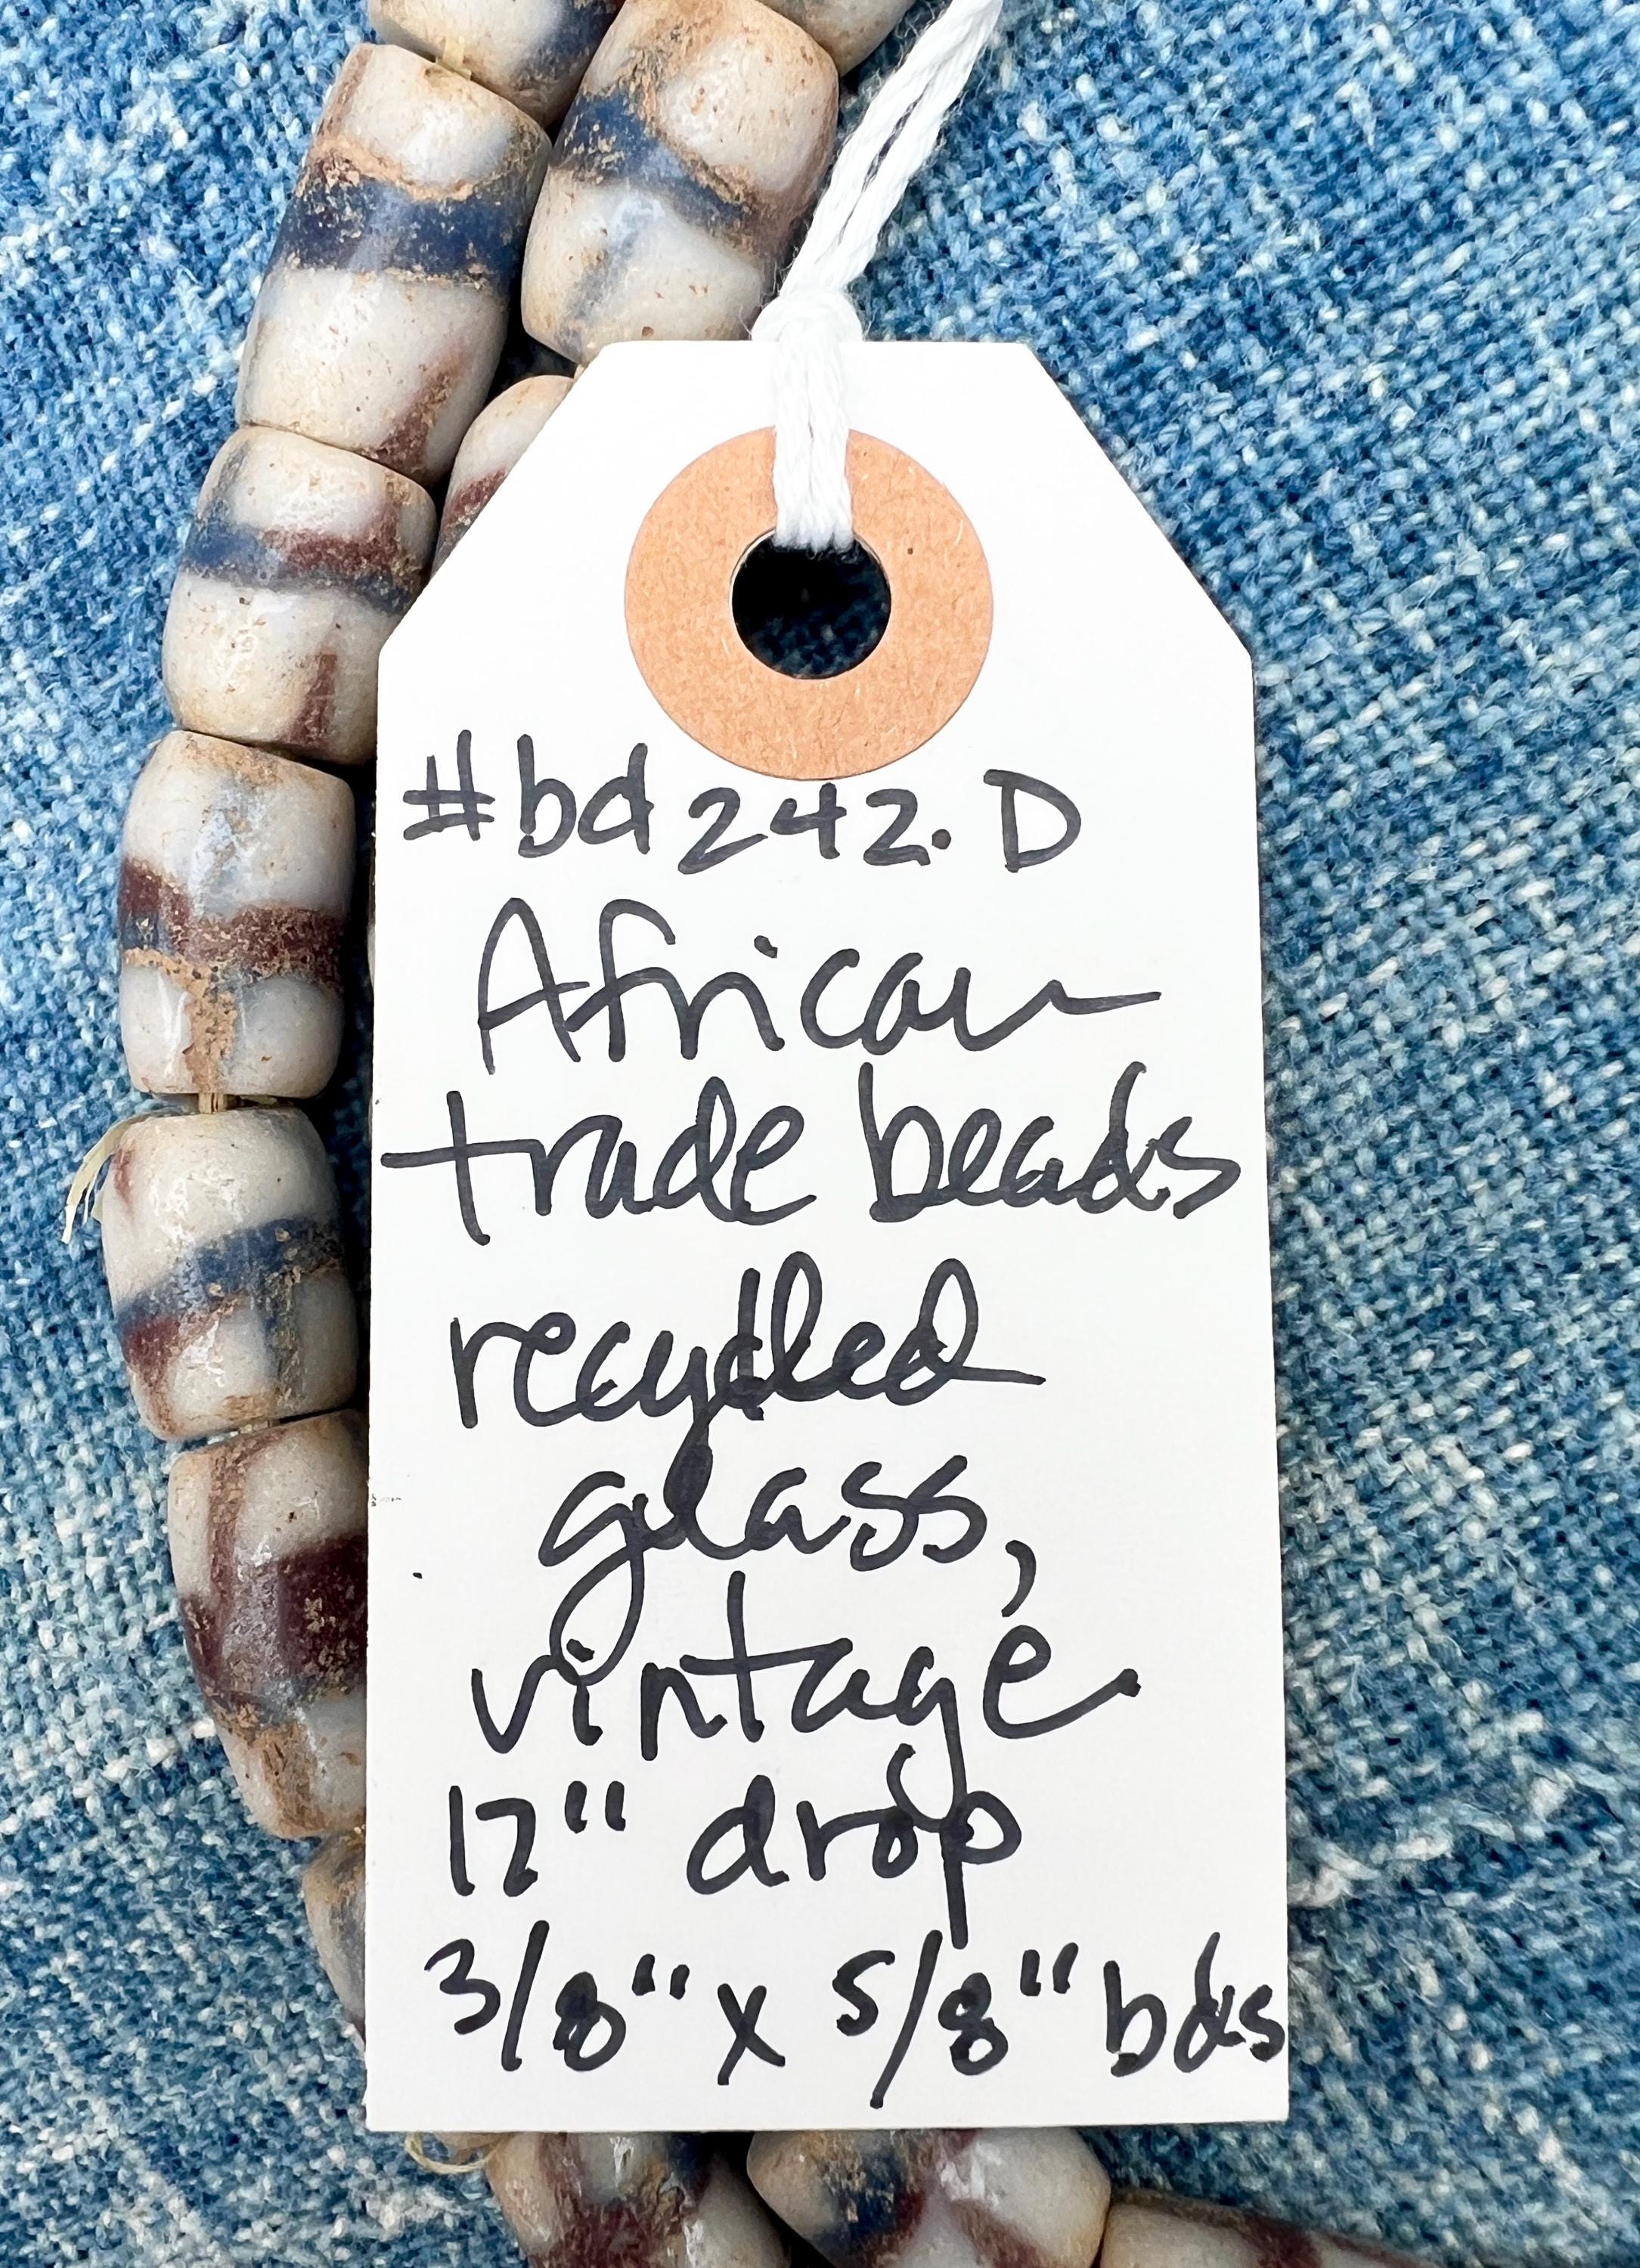 #bd242.D
African
trade beads
recycled
glass,
vintage
12" drop
3/8" x 5/8" bds